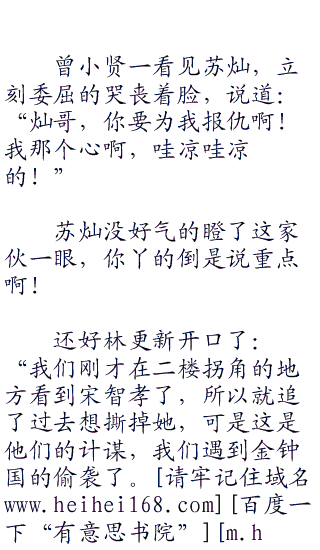 曾小贤一看见苏灿，立
刻委屈的哭丧着脸，说道：
“灿哥，你要为我报仇啊！
我那个心啊，哇凉哇凉
的！”
苏灿没好气的瞪了这家
伙一眼，你丫的倒是说重点
啊！
还好林更新开口了：
“我们刚才在二楼拐角的地
方看到宋智孝了，所以就追
了过去想撕掉她，可是这是
他们的计谋，我们遇到金钟
国的偷袭了。[请牢记住域名
www.heihei168.com][百度一
下“有意思书院”][m.h